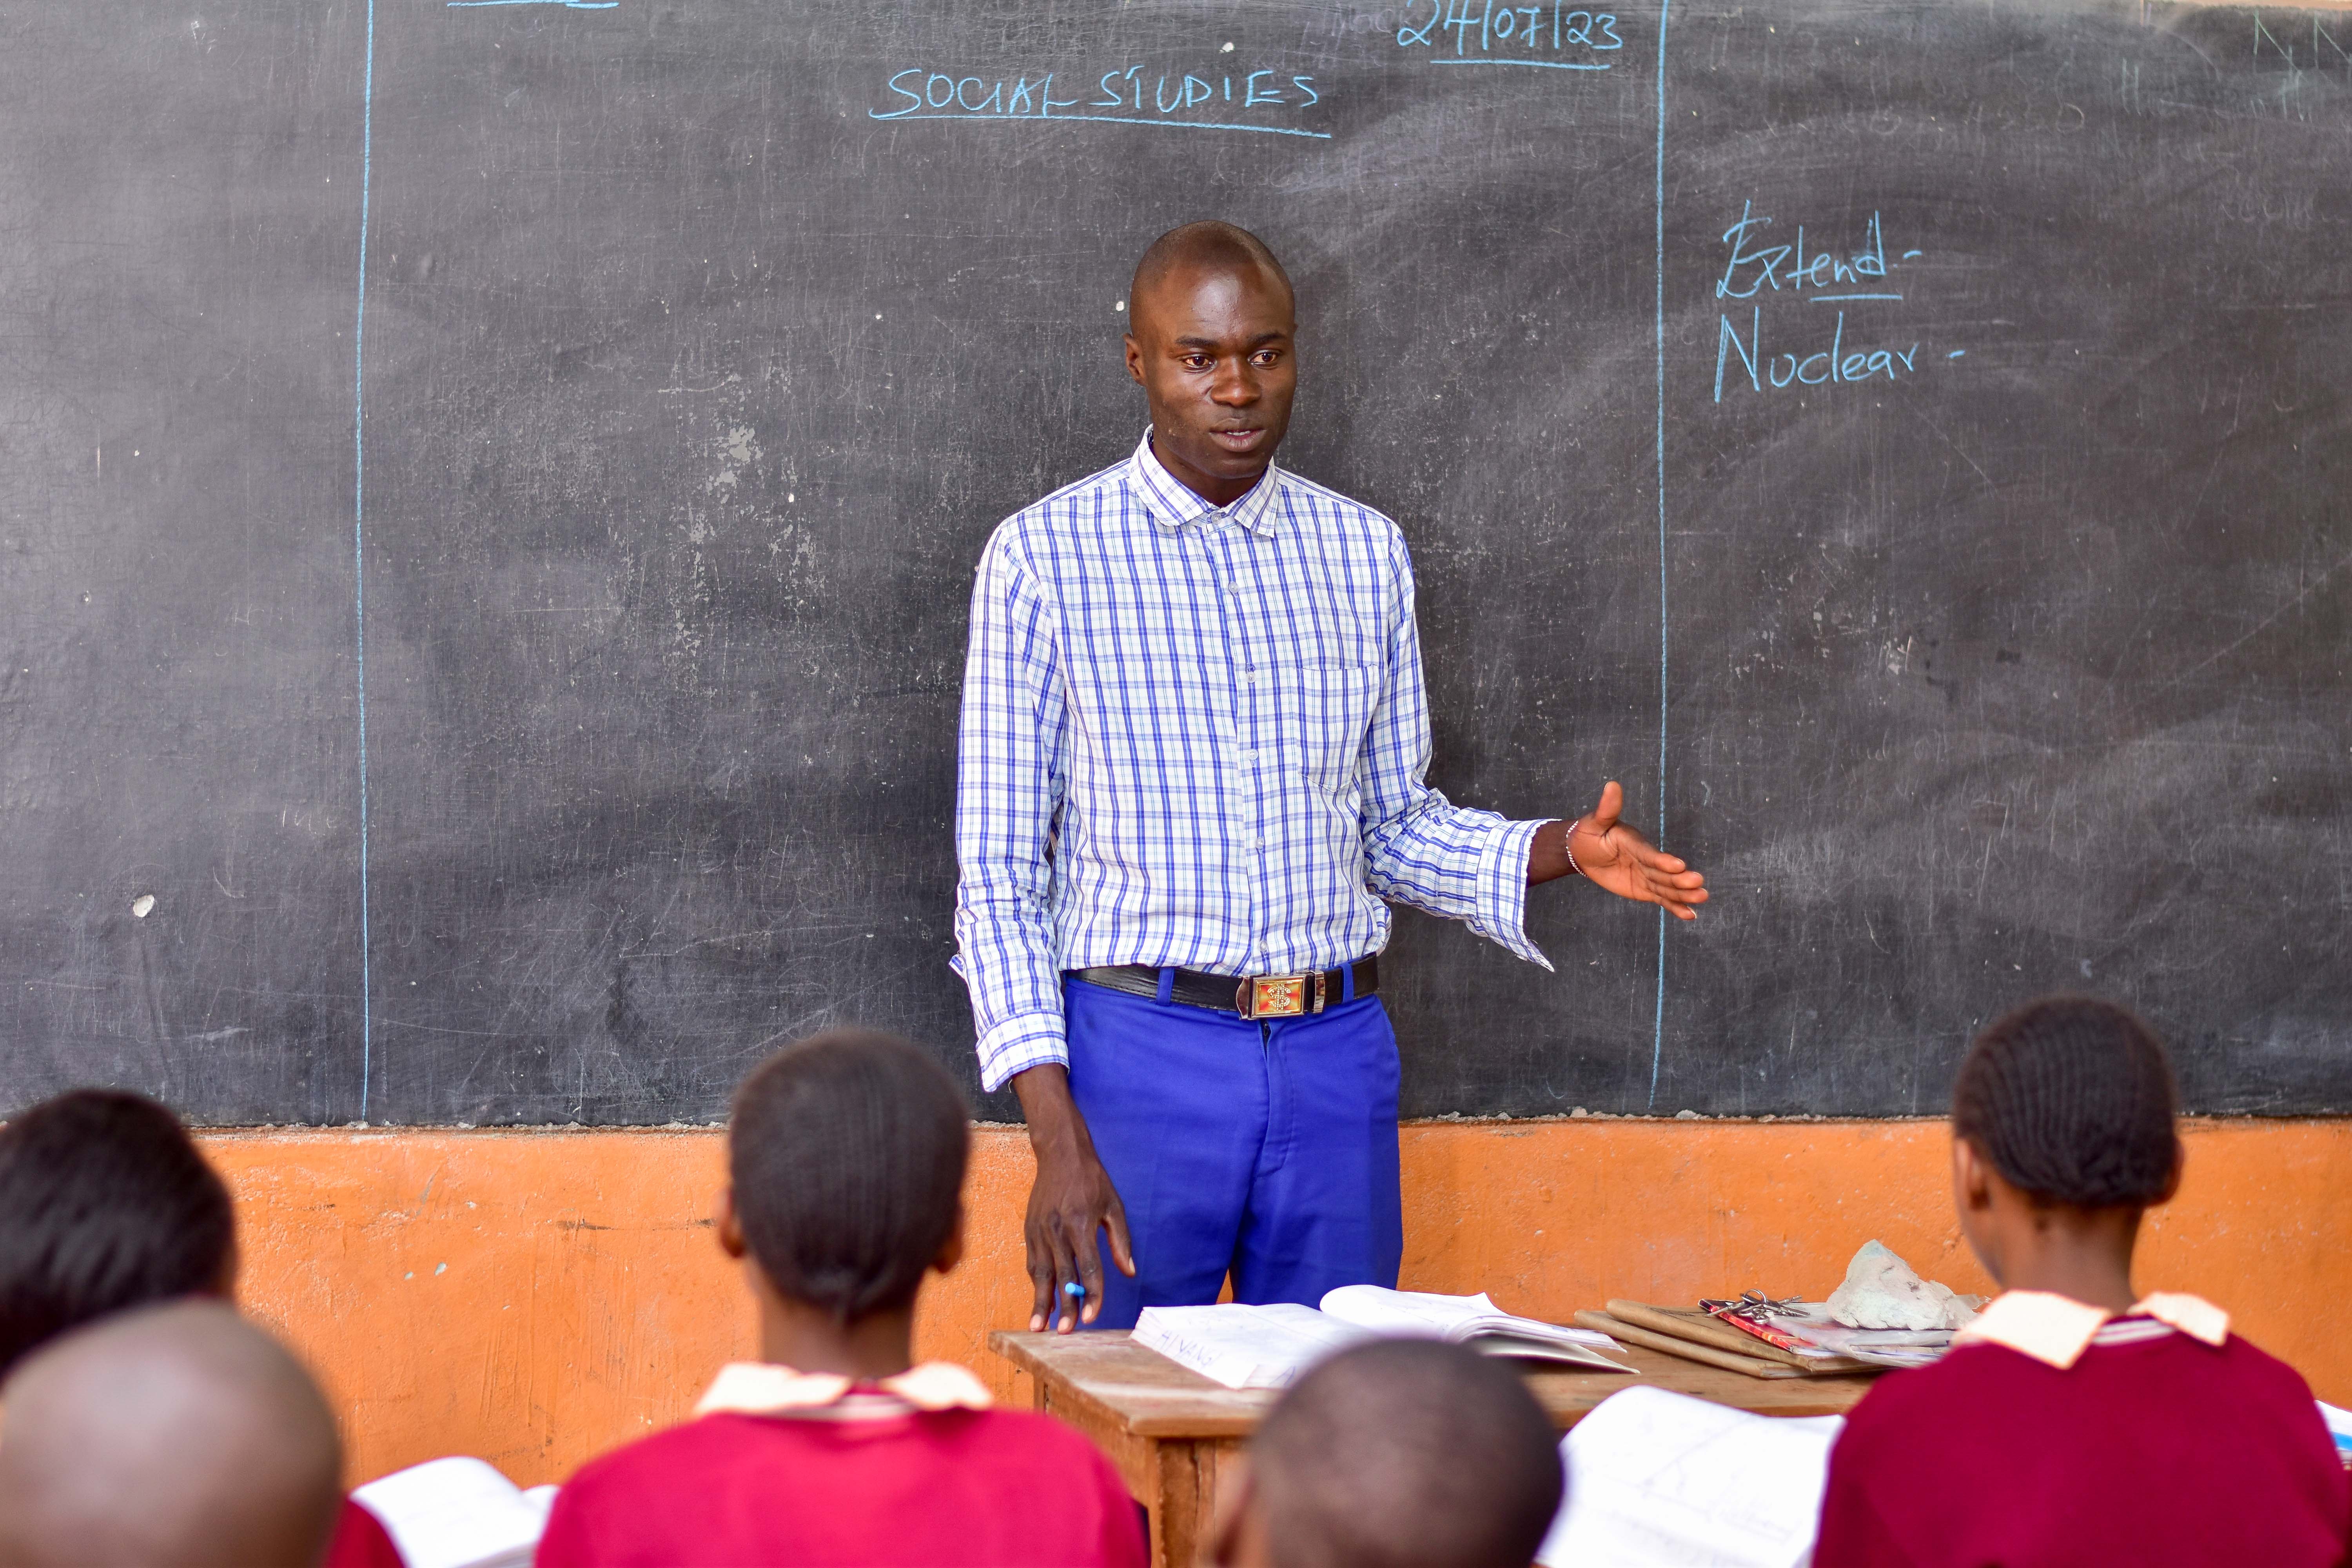 24/07/23
SOCIAL STUDIES
Extend -
Nuclear -